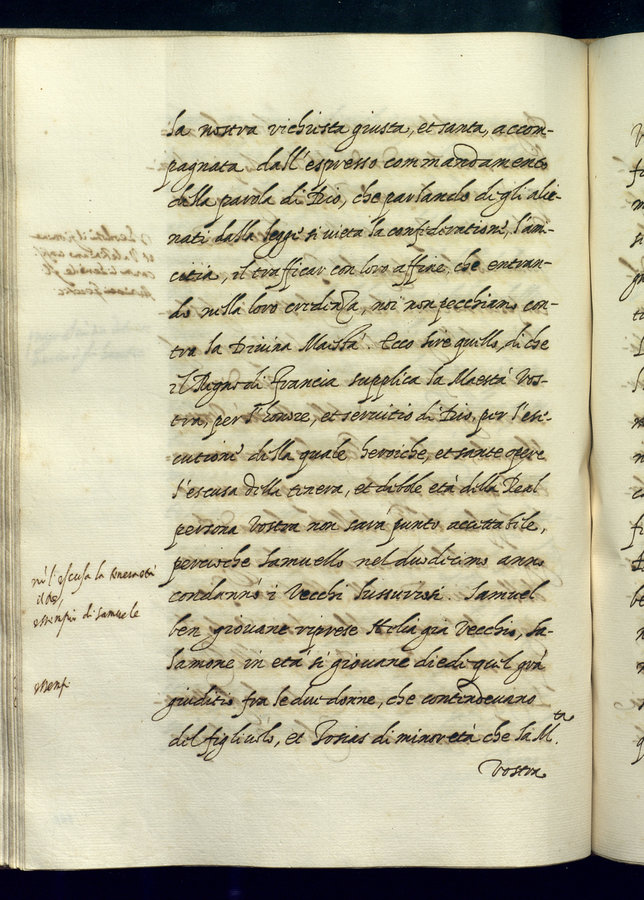 la nostra richiesta giusta, et santa, accom-
pagnata dall'espresso commandamento
della parola di Dio, che parlando di gli alie-
nati dalla legge si vieta la confederatione, l'am-
icitia, il trafficar con loro affine che entran-
do nella loro credenza, noi non pecchiamo con-
tra la Divina Maestà. Ecco sire quello, di che
il Regno di Francia supplica la Maestà Vos-
tra, per l'honore, et servitio di Dio, per l'ese-
cutione della quale heroiche, et sante opere
l'escusa della tenera, et debole età della Real
persona Vostra non sarà punto accettabile,
percioche Samuello nel duodecimo anno
condannò i Vecchi lussuriosi. Samuel
ben giovane riprese Helia già Vecchio, Sa-
lamone in età sì giovane diede quel grā
giuditio fra le due donne, che contendevano
del figliuolo, et Josias di minor età che la M.ta
Vostra
nè l'escusa la tenera età
essempio di Samuele
essempi